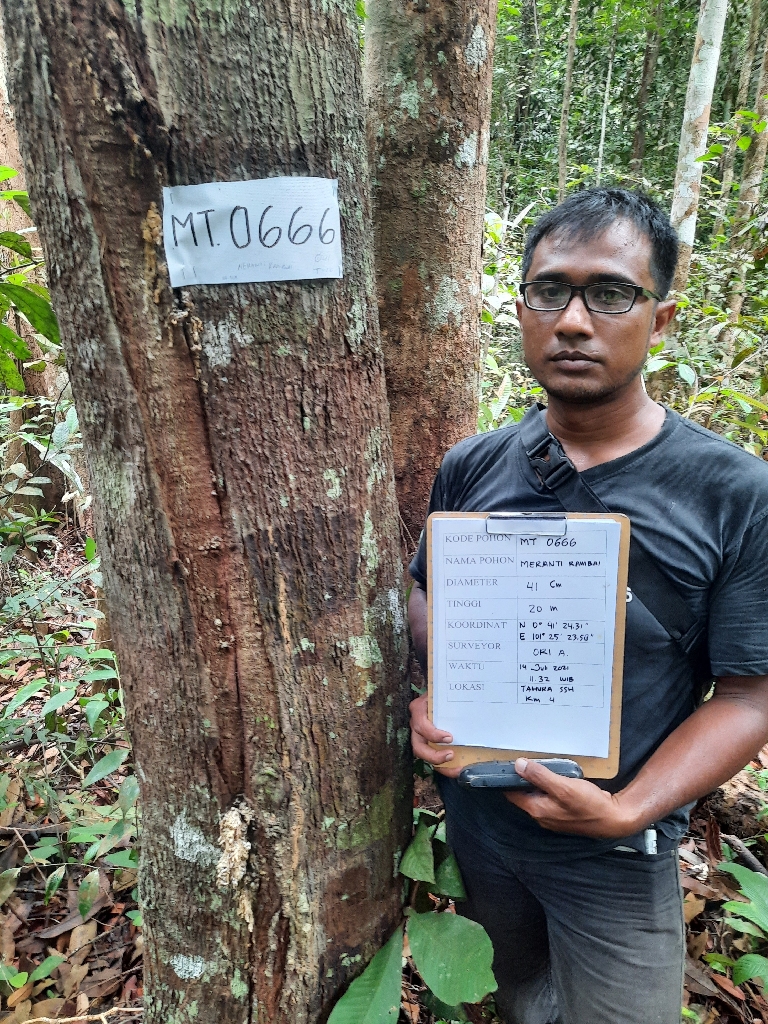 MT. 0666
KODE POHON MT 0666
NAMA POHON MERANTI RAMBAI
DIAMETER 41 Cm
TINGGI 20 m
KOORDINAT N 0° 41' 24.31"
E 101° 25' 23.50"
SURVEYOR OKI A.
WAKTU 14 Jul 2021
11.32 WIB
LOKASI TAHURA SSH
Km 4